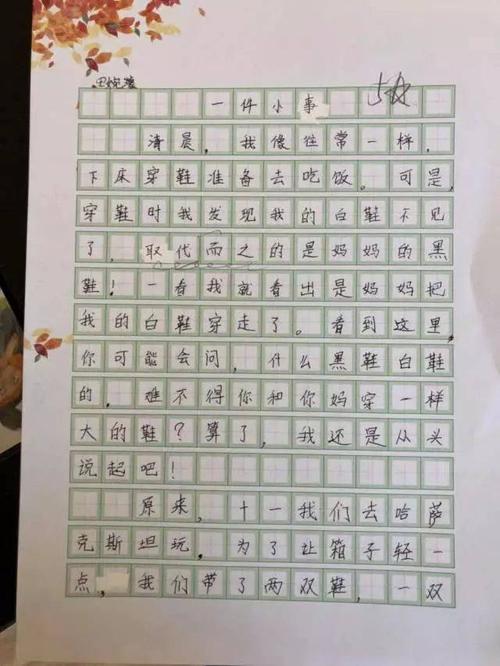 一件小事 5☆
清晨，我像往常一样，
下床穿鞋准备去吃饭。可是，
穿鞋时我发现我的白鞋不见
了，取代而之的是妈妈的黑
鞋！一看我就看出是妈妈把
我的白鞋穿走了。看到这里，
你可能会问，什么黑鞋白鞋
的，难不得你和你妈穿一样
大的鞋？算了，我还是从头
说起吧！
原来，十一我们去哈萨
克斯坦玩，为了让箱子轻一
点，我们带了两双鞋，一双